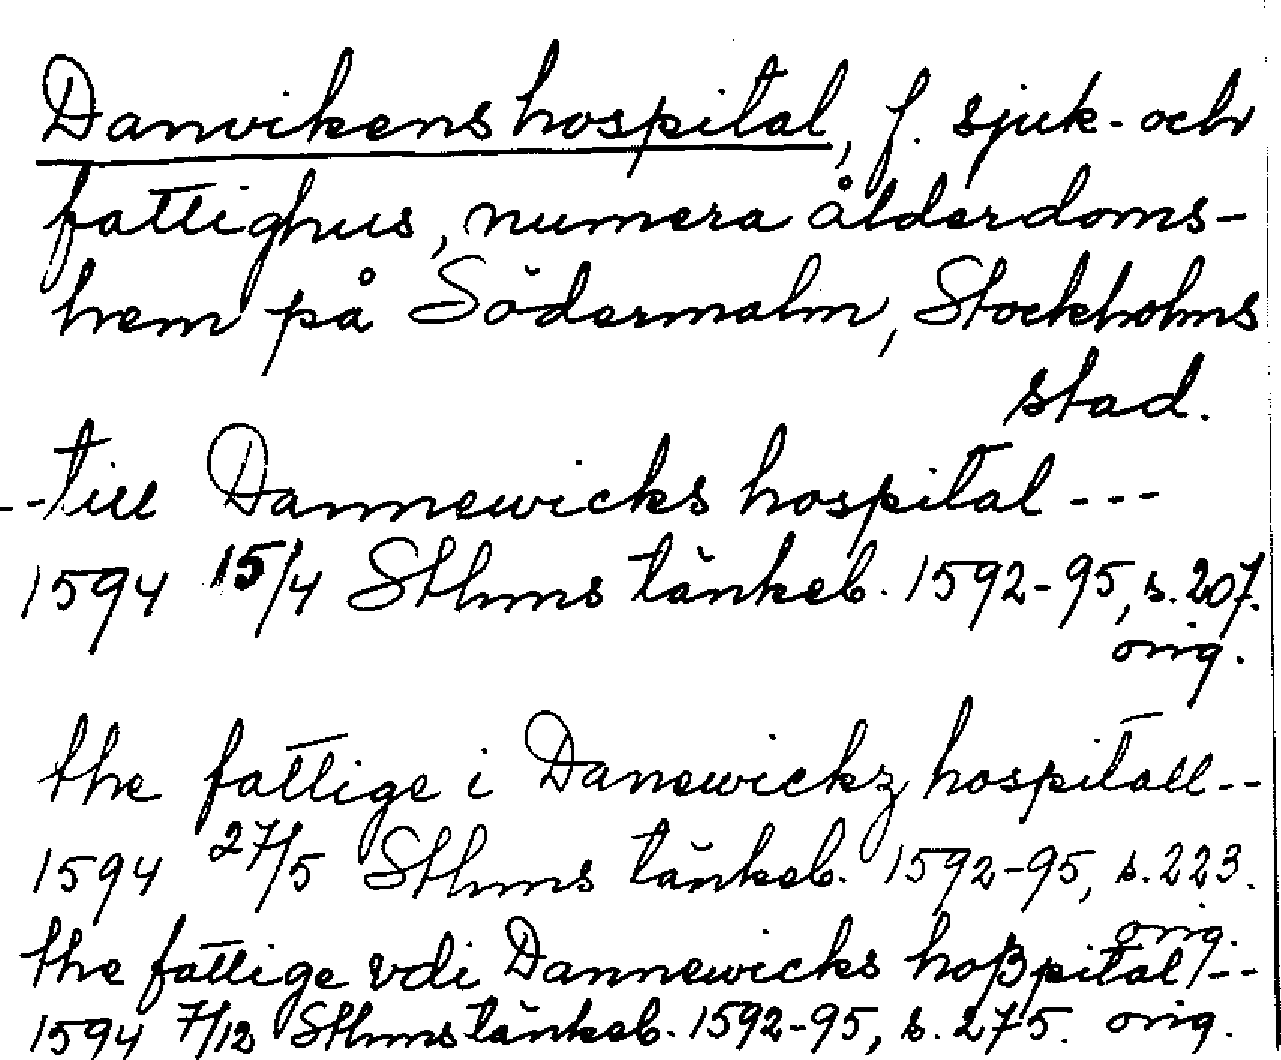 Danvikens hospital, f. sjuk- och
fattighus, numera ålderdoms-
hem på Södermalm, Stockholms
stad.
--till Dannewicks hospital ---
1594 15/4 Sthms tänkeb. 1592-95, s. 207.
orig.
the fattige i Danewickz hospitall--
1594 27/5 Sthms tänkeb. 1592-95, s. 223.
orig.
the fattige vdi Dannewicks hoßpital/--
1594 7/12 Sthms tänkeb. 1592-95, s. 275. orig.